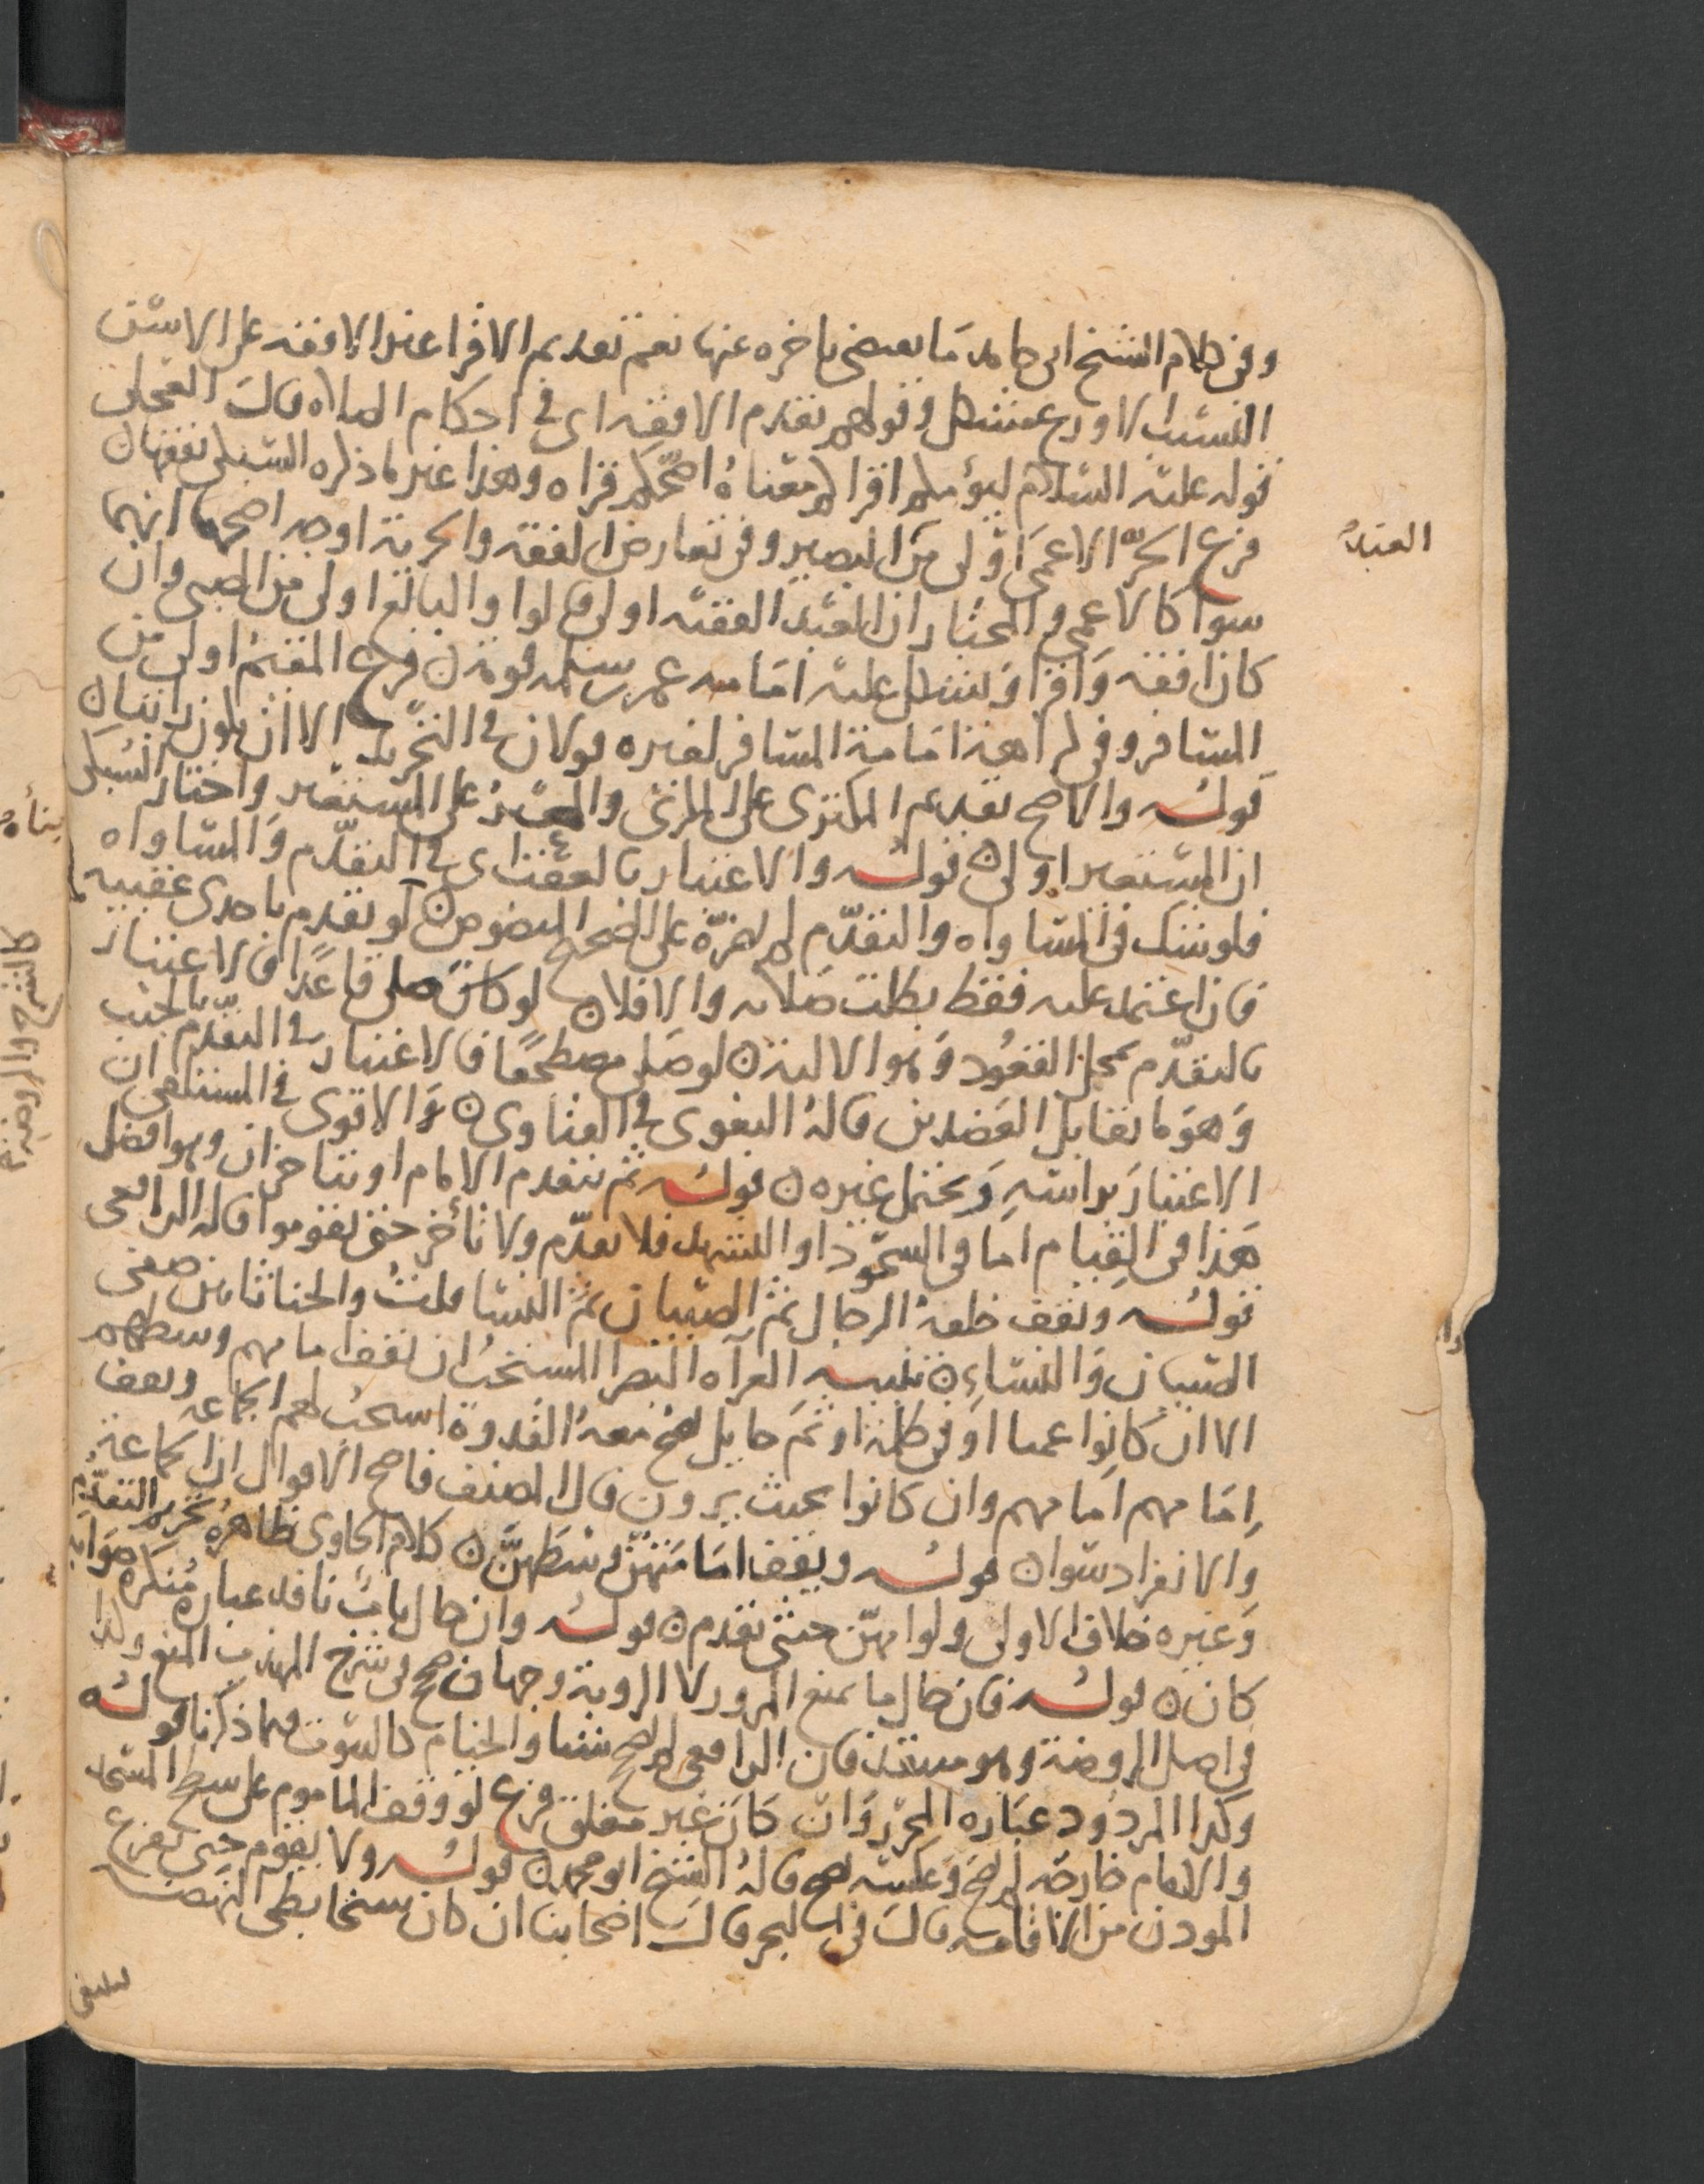 وفي كلام الشيخ ابي حامد ما يقتضي تاخره عنها نعم تقديم الاقرا عند الافقه على الاسن
النسيب الاورع مشكل وقولهم يقدم الافقه اي في احكام الصلاه قالـ العجلي
قوله عليه السلام ليؤمكم اقراكم معناه اصحكم قراه وهذا غير ما ذكره السبكي تفقها ن
العبد
فرع الحر الاعمى اولى من البصير وفي تعارض الفقه والحرية اوجه اصحها انهما
سوا كالاعمى والمختار ان العبد الفقيه اولى قالوا والبالغ اولى من الصبي وان
كان افقه واقرا ويشكل عليه امامه عمر بن سلمه قومه ن فرع المقيم اولى من
المسافر وفي كراهة امامة المسافر لغيره قولان في التحرير الا ان يكون
قولـه والاصح تقديم المكتري على المكري والمعير على المستعير واختار السبكي
ان المستعير اولى ن قولـه والاعتبار بالعقب اي في التقدم والمساواه
فلو شك في المساواه والتقدم لم يضره على الصحيح المنصوص ن لو تقدم باحدى عقبيه
فان اعتمد عليه فقط بطلت صلاته والا فلا ن لو كان صلى قاعدا فالاعتبار
بالتقدم بمحل القعود وهو الالية ن لو صلى مضطجعا فالاعتبار في التقدم بالجنب
وهو ما يقابل العضدين قاله البغوي في الفتاوى ن والاقوى في المستلقي ان
الاعتبار براسه ويحتمل غيره ن قولـه ثم يتقدم الامام او يتاخران وهو افضل
هذا في القيام اما في السجود او التشهد فلا تقدم ولا تاخر حتى يقوموا قاله الرافعي
قولـه ويقف خلفه الرجال ثم الصبيان ثم النسا قلت والخناثا بين صفي
الصبيان والنساء ن تنبيه العراه البصرا المستحب ان يقف امامهم وسطهم
الا ان كانوا عميا او في ظلمة او ثم حايل صح معه القدوة استحب لهم الجماعه ويقف
امامهم امامهم وان كانوا بحيث يرون قال المصنف فاصح الاقوال ان الجماعة
والانفراد سوا ن قولـه ويقف امامتهن وسطهن ن كلام الحاوي ظاهره تحريم التقدم
وغيره خلاف الاولى ولو امهن خنثى تقدم ن قولـه وان حال باب نافذ عباره منكره صوابه
كان ن قولـه فان حال ما يمنع المرور لا الروية وجهان صح في شرح المهذب المنع وكذا
في اصل الروضة وهو مستدرك فان الرافعي لم يصحح شيا والخيام كالبيوت فيما ذكرنا قولـه
وكذا المردود عباره المحرر وان كان غير مغلق فرع لو وقف الماموم على سطح المسجد
والامام خارجه لم يصح وعكسه صح قاله الشيخ ابو محمد ن قولـه ولا يقوم حتى يفرغ
الموذن من الاقامه قالـ في البحر قالـ اصحابنا ان كان شيخا بطي النهضـه